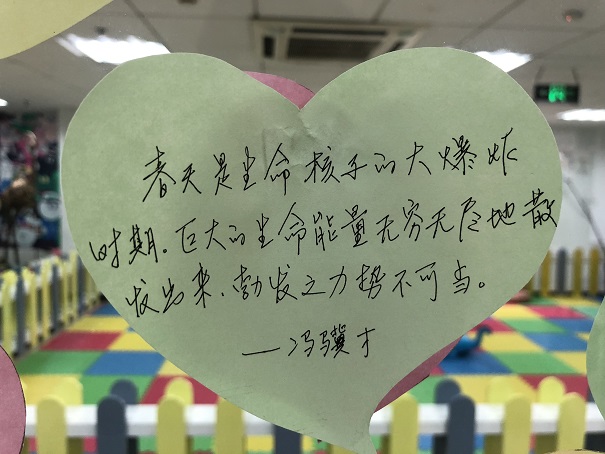 春天是生命核子的大爆炸
时期。巨大的生命能量无穷无尽地散
发出来、勃发之力势不可当。
—冯骥才